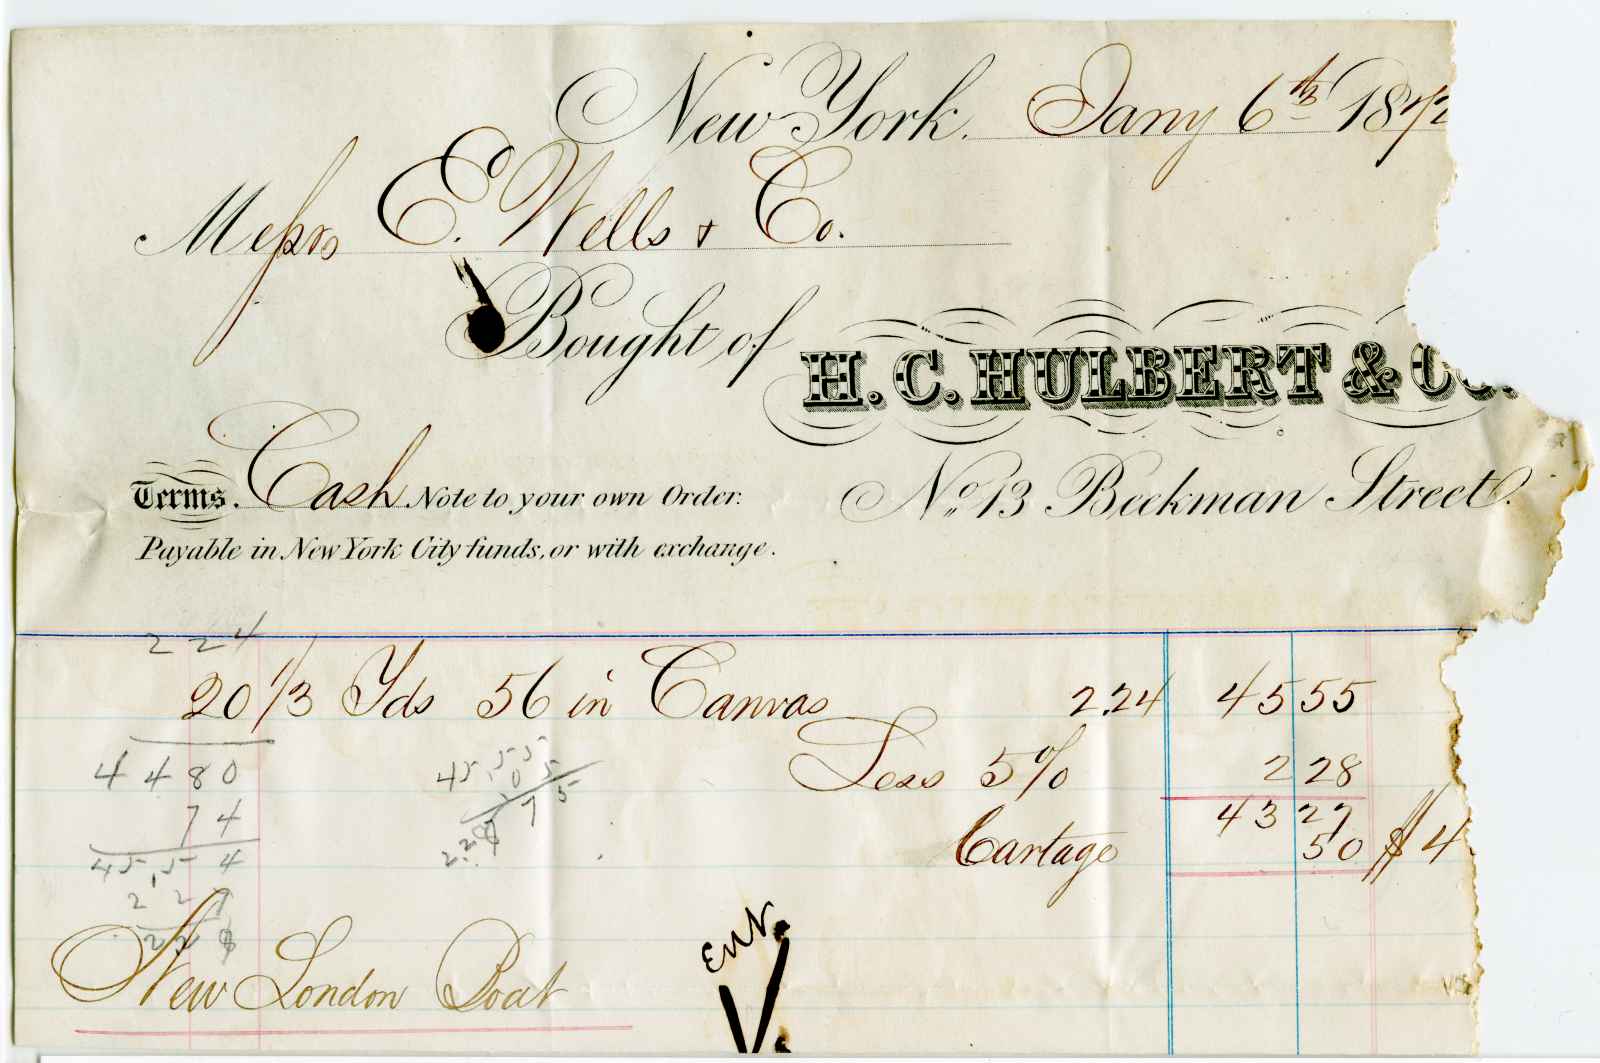 New York, Jany 6th 187
Messrs E. Wells & Co.
Bought of
H. C. HULBERT & CO.
Terms. Cash Note to your own Order.
No. 13 Beekman Street.
Payable in New York City funds, or with exchange.
224
20 1/3 Yds 56 in Canvas 2.24 45 55
Less 5% 2 28
43 27
Cartage 50 $4
4480
74
45,54
45,55
.05
New London Boat
Ent.